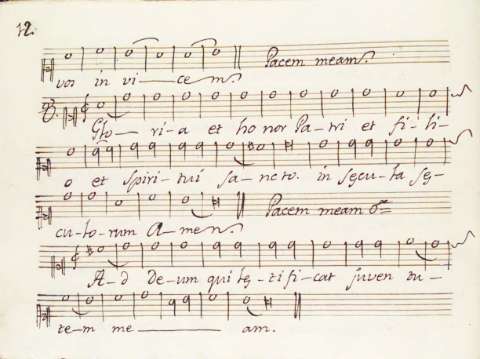 12.
Pacem meam.
vos in vi—cem.
Glo—ria et honor Pa-tri et fi-li-
o et Spiri-tui sa-ncto. in sęcu-la sę-
Pacem meam
cu-lo-rum A-men.
A-d De-um qui lę-tifi-cat juven tu-
tem me——am.